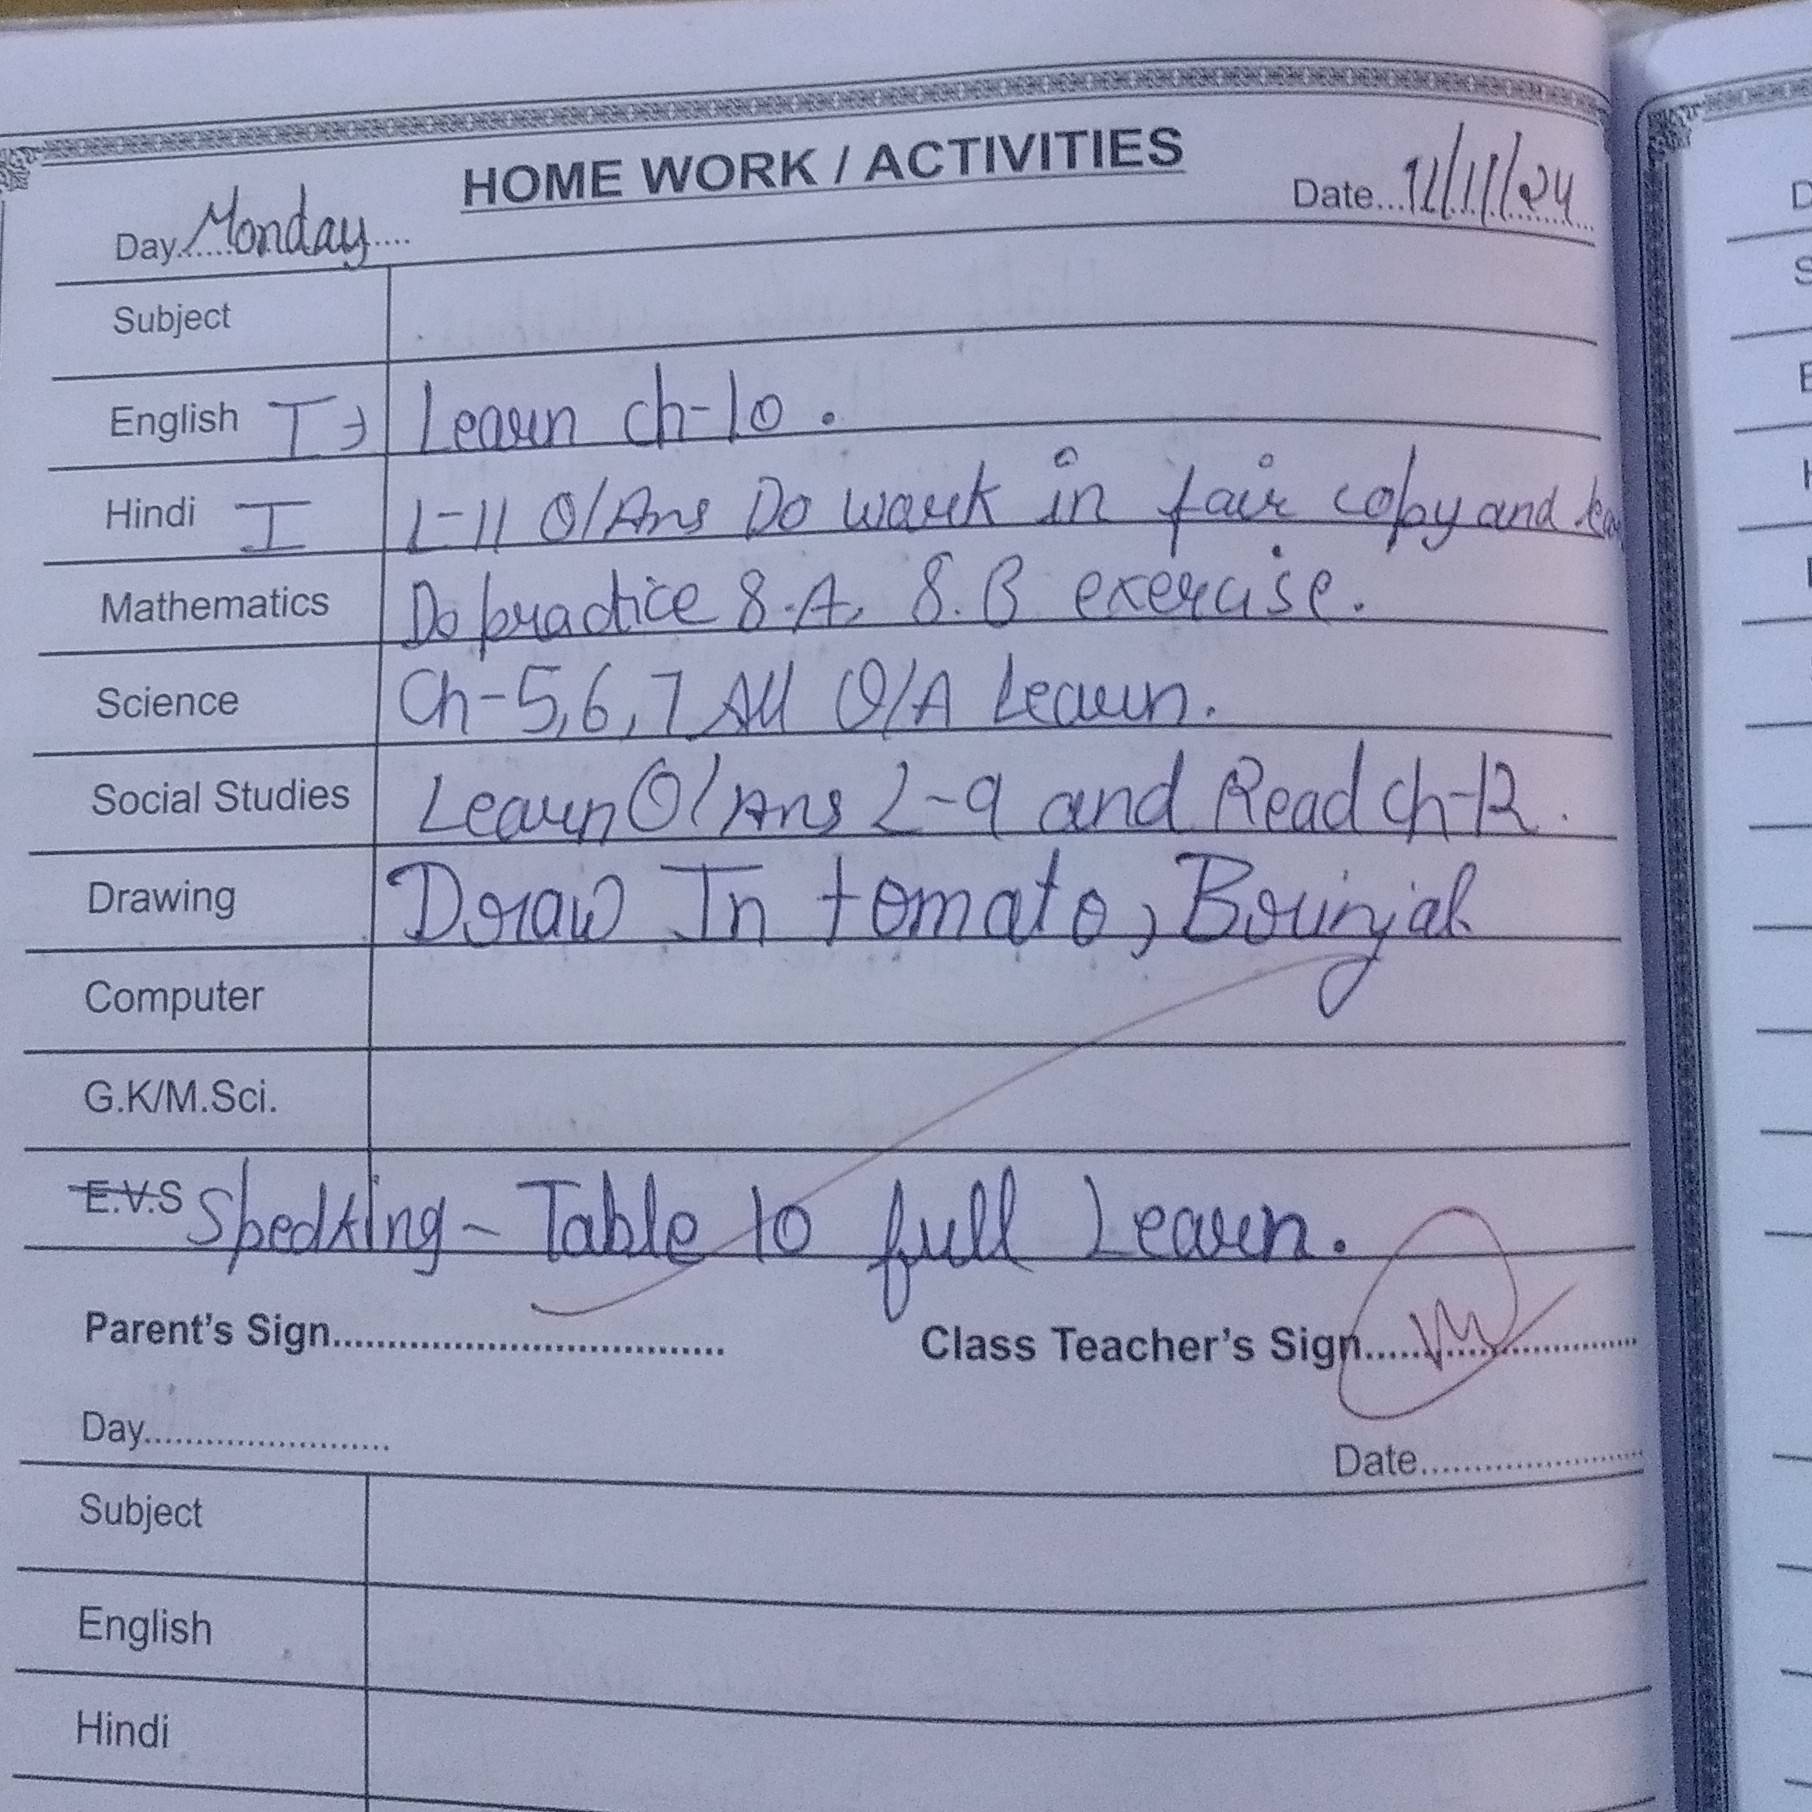 HOME WORK / ACTIVITIES
Day Monday Date 12/11/24
Subject
English I Learn ch-10.
Hindi I L-11 Q/Ans Do wark in fair copy and
Mathematics Do practice 8.A, 8.B exercise.
Science Ch-5,6,7 All Q/A Learn.
Social Studies Learn Q/Ans L-9 and Read ch-12.
Drawing Draw In tomato, Brinjal
Computer
G.K/M.Sci.
E.V.S Speaking - Table to full Learn.
Parent's Sign Class Teacher's Sign
Day Date
Subject
English
Hindi